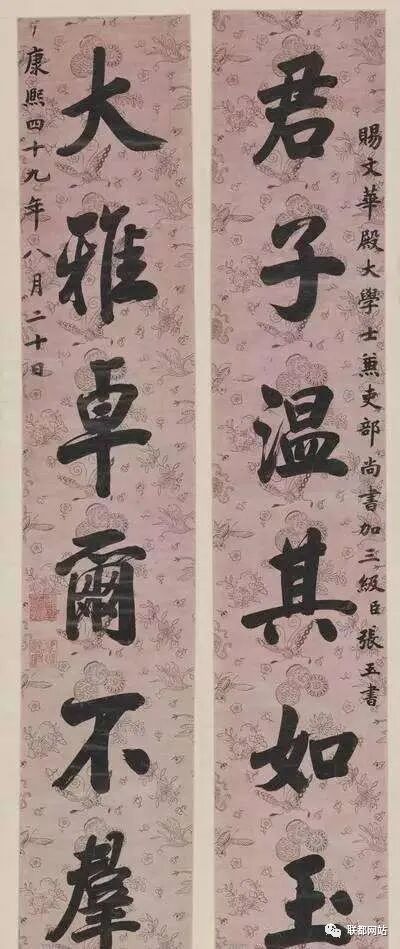 賜文華殿大學士兼吏部尚書加三級臣張玉書
君子温其如玉
大雅卓爾不羣
康熙四十九年八月二十日
联都网站